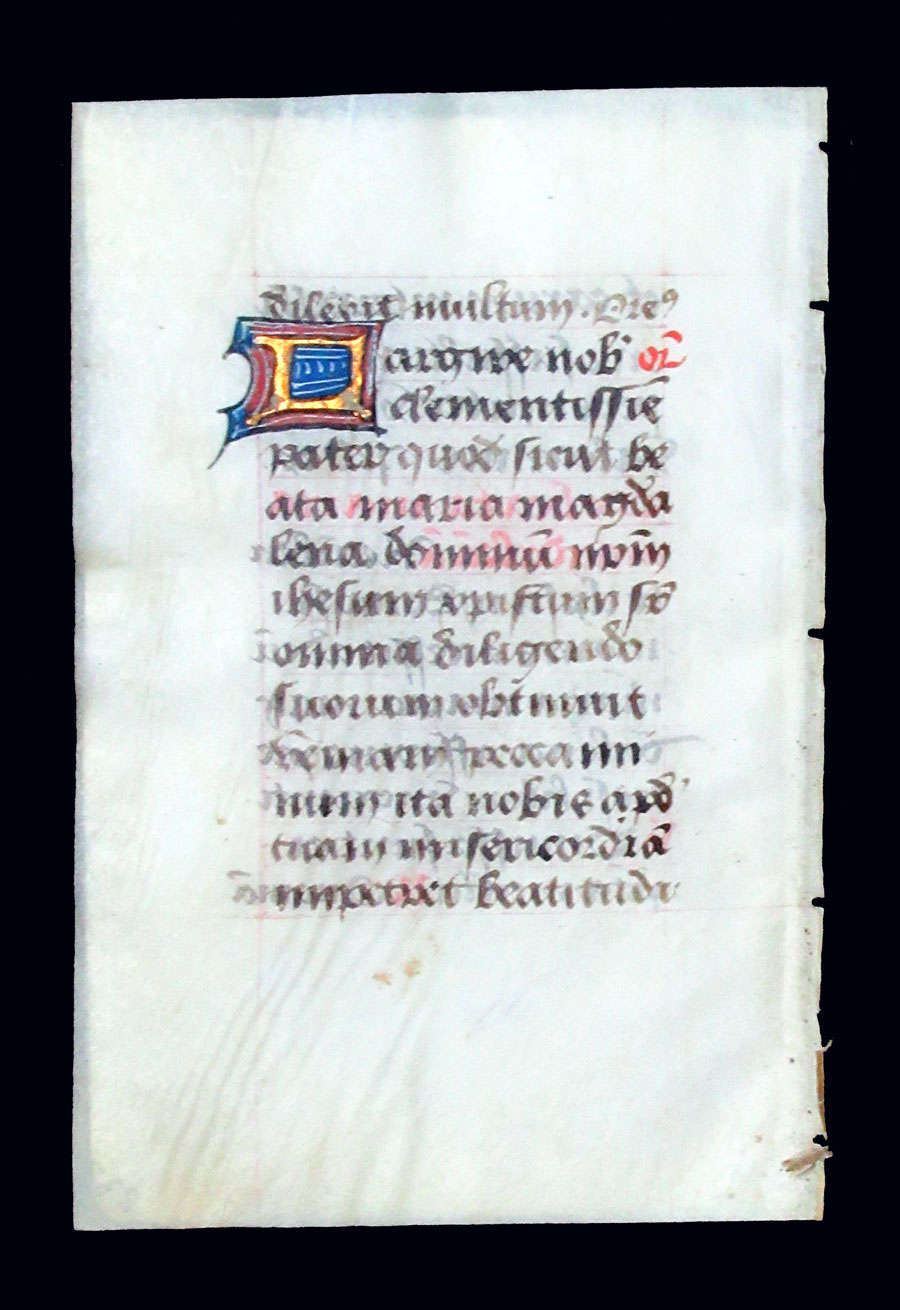 dilexit multum. Oreꝰ
Largire nobˀ or̄
clementissīe
pater quod sicut be
ata maria magda
lena dominū nr̄m
ihesum xp̄istum suꝑ
omnia diligendo
suorum obtinuit
veniam pecca mi
num ita nobis apᵭ
tuam misericordiā
impetret beatitudi